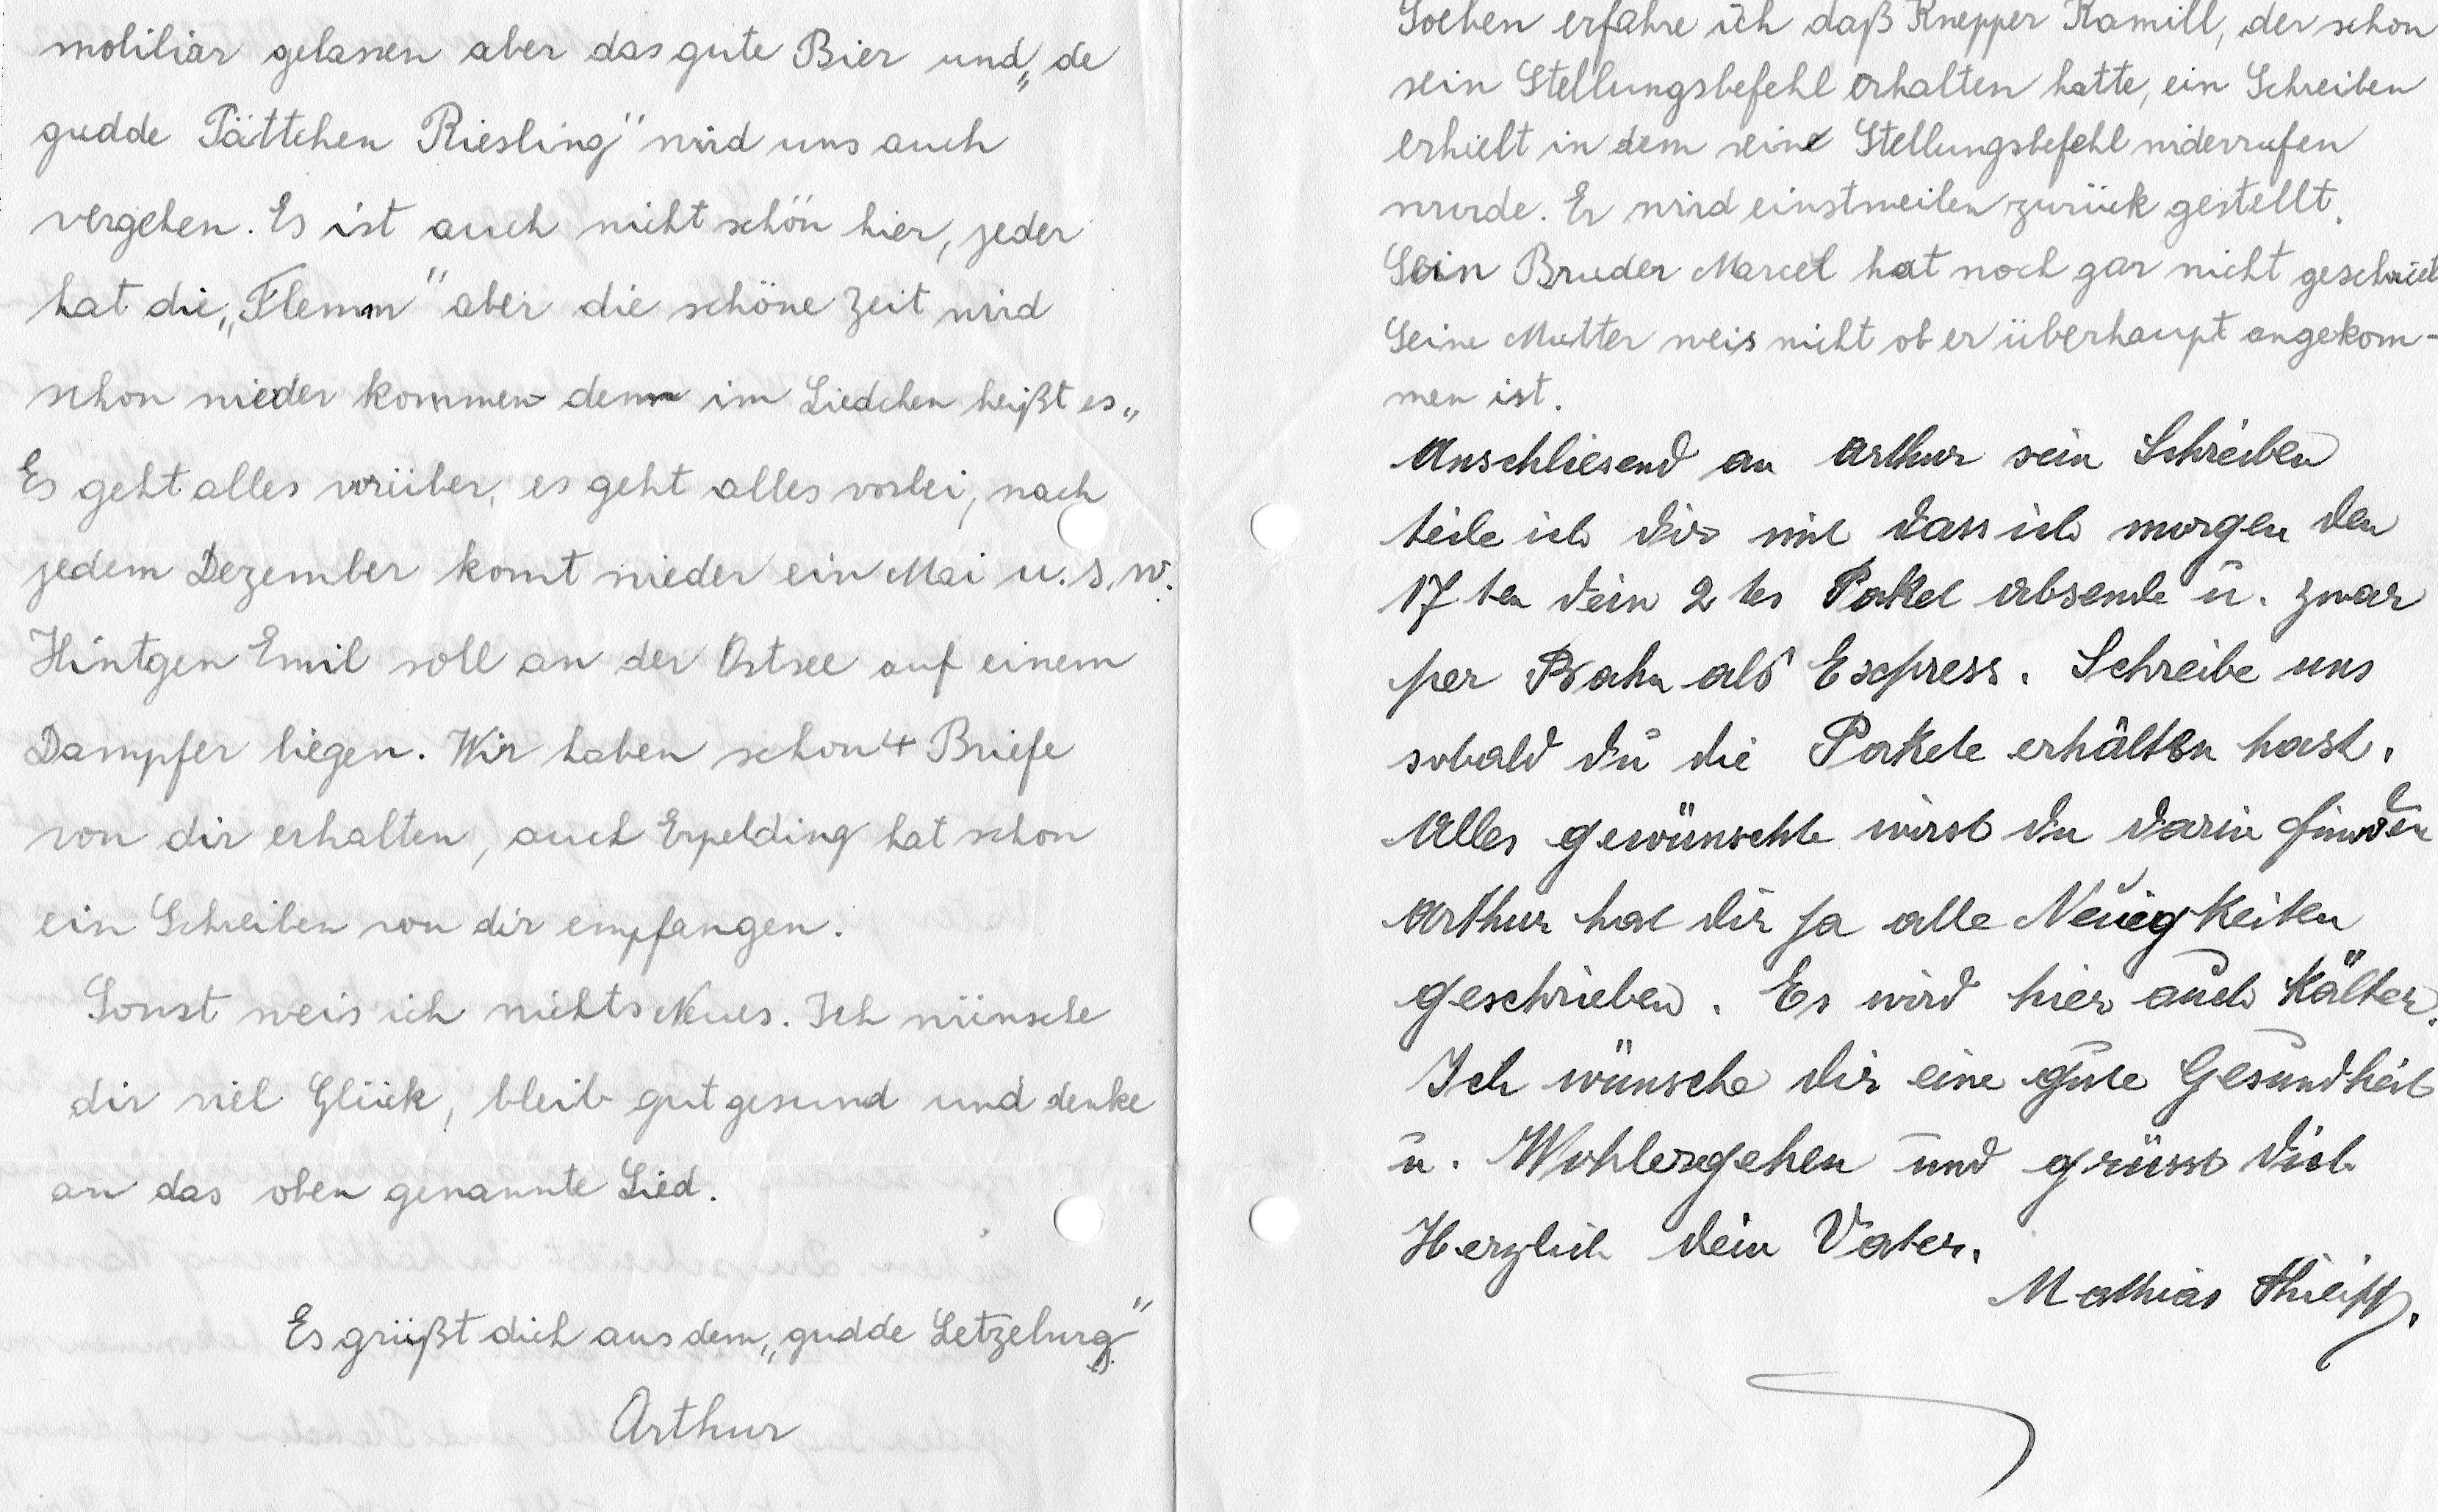 mobiliar gelassen aber das gute Bier und „de
gudde Pättchen Riesling" wird uns auch
vergehen. Es ist auch nicht schön hier, jeder
hat die „Flemm" aber die schöne Zeit wird
schon wieder kommen denn im Liedchen heißt es „
Es geht alles vorüber, es geht alles vorbei, nach
jedem Dezember komt wieder ein Mai u.s.w.
Hintgen Emil soll an der Ostsee auf einem
Dampfer liegen. Wir haben schon 4 Briefe
von dir erhalten, auch Erpelding hat schon
ein Schreiben von dir empfangen.
Sonst weis ich nichts Neues. Ich wünsche
dir viel Glück, bleib gut gesund und denke
an das oben genannte Lied.
Es grüßt dich aus dem „gudde Letzeburg"
Arthur
Soeben erfahre ich daß Knepper Kamill, der schon
sein Stellungsbefehl erhalten hatte, ein Schreiben
erhielt in dem sein Stellungsbefehl widerrufen
wurde. Er wird einstweilen zurück gestellt.
Sein Bruder Marcel hat noch gar nicht geschrieb
Seine Mutter weis nicht ob er überhaupt angekom-
men ist.
Anschliesend an Arthur sein Schreiben
teile ich dir mit dass ich morgen den
17ten dein 2tes Paket absende u. zwar
per Bahn als Express. Schreibe uns
sobald du die Pakete erhälten hast.
Alles gewünschte wirst du darin finden
Arthur hat dir ja alle Neuigkeiten
geschrieben. Es wird hier auch Kälter.
Ich wünsche dir eine gute Gesundheit
u. Wohlergehen und grüsst dich
Herzlich dein Vater.
Mathias